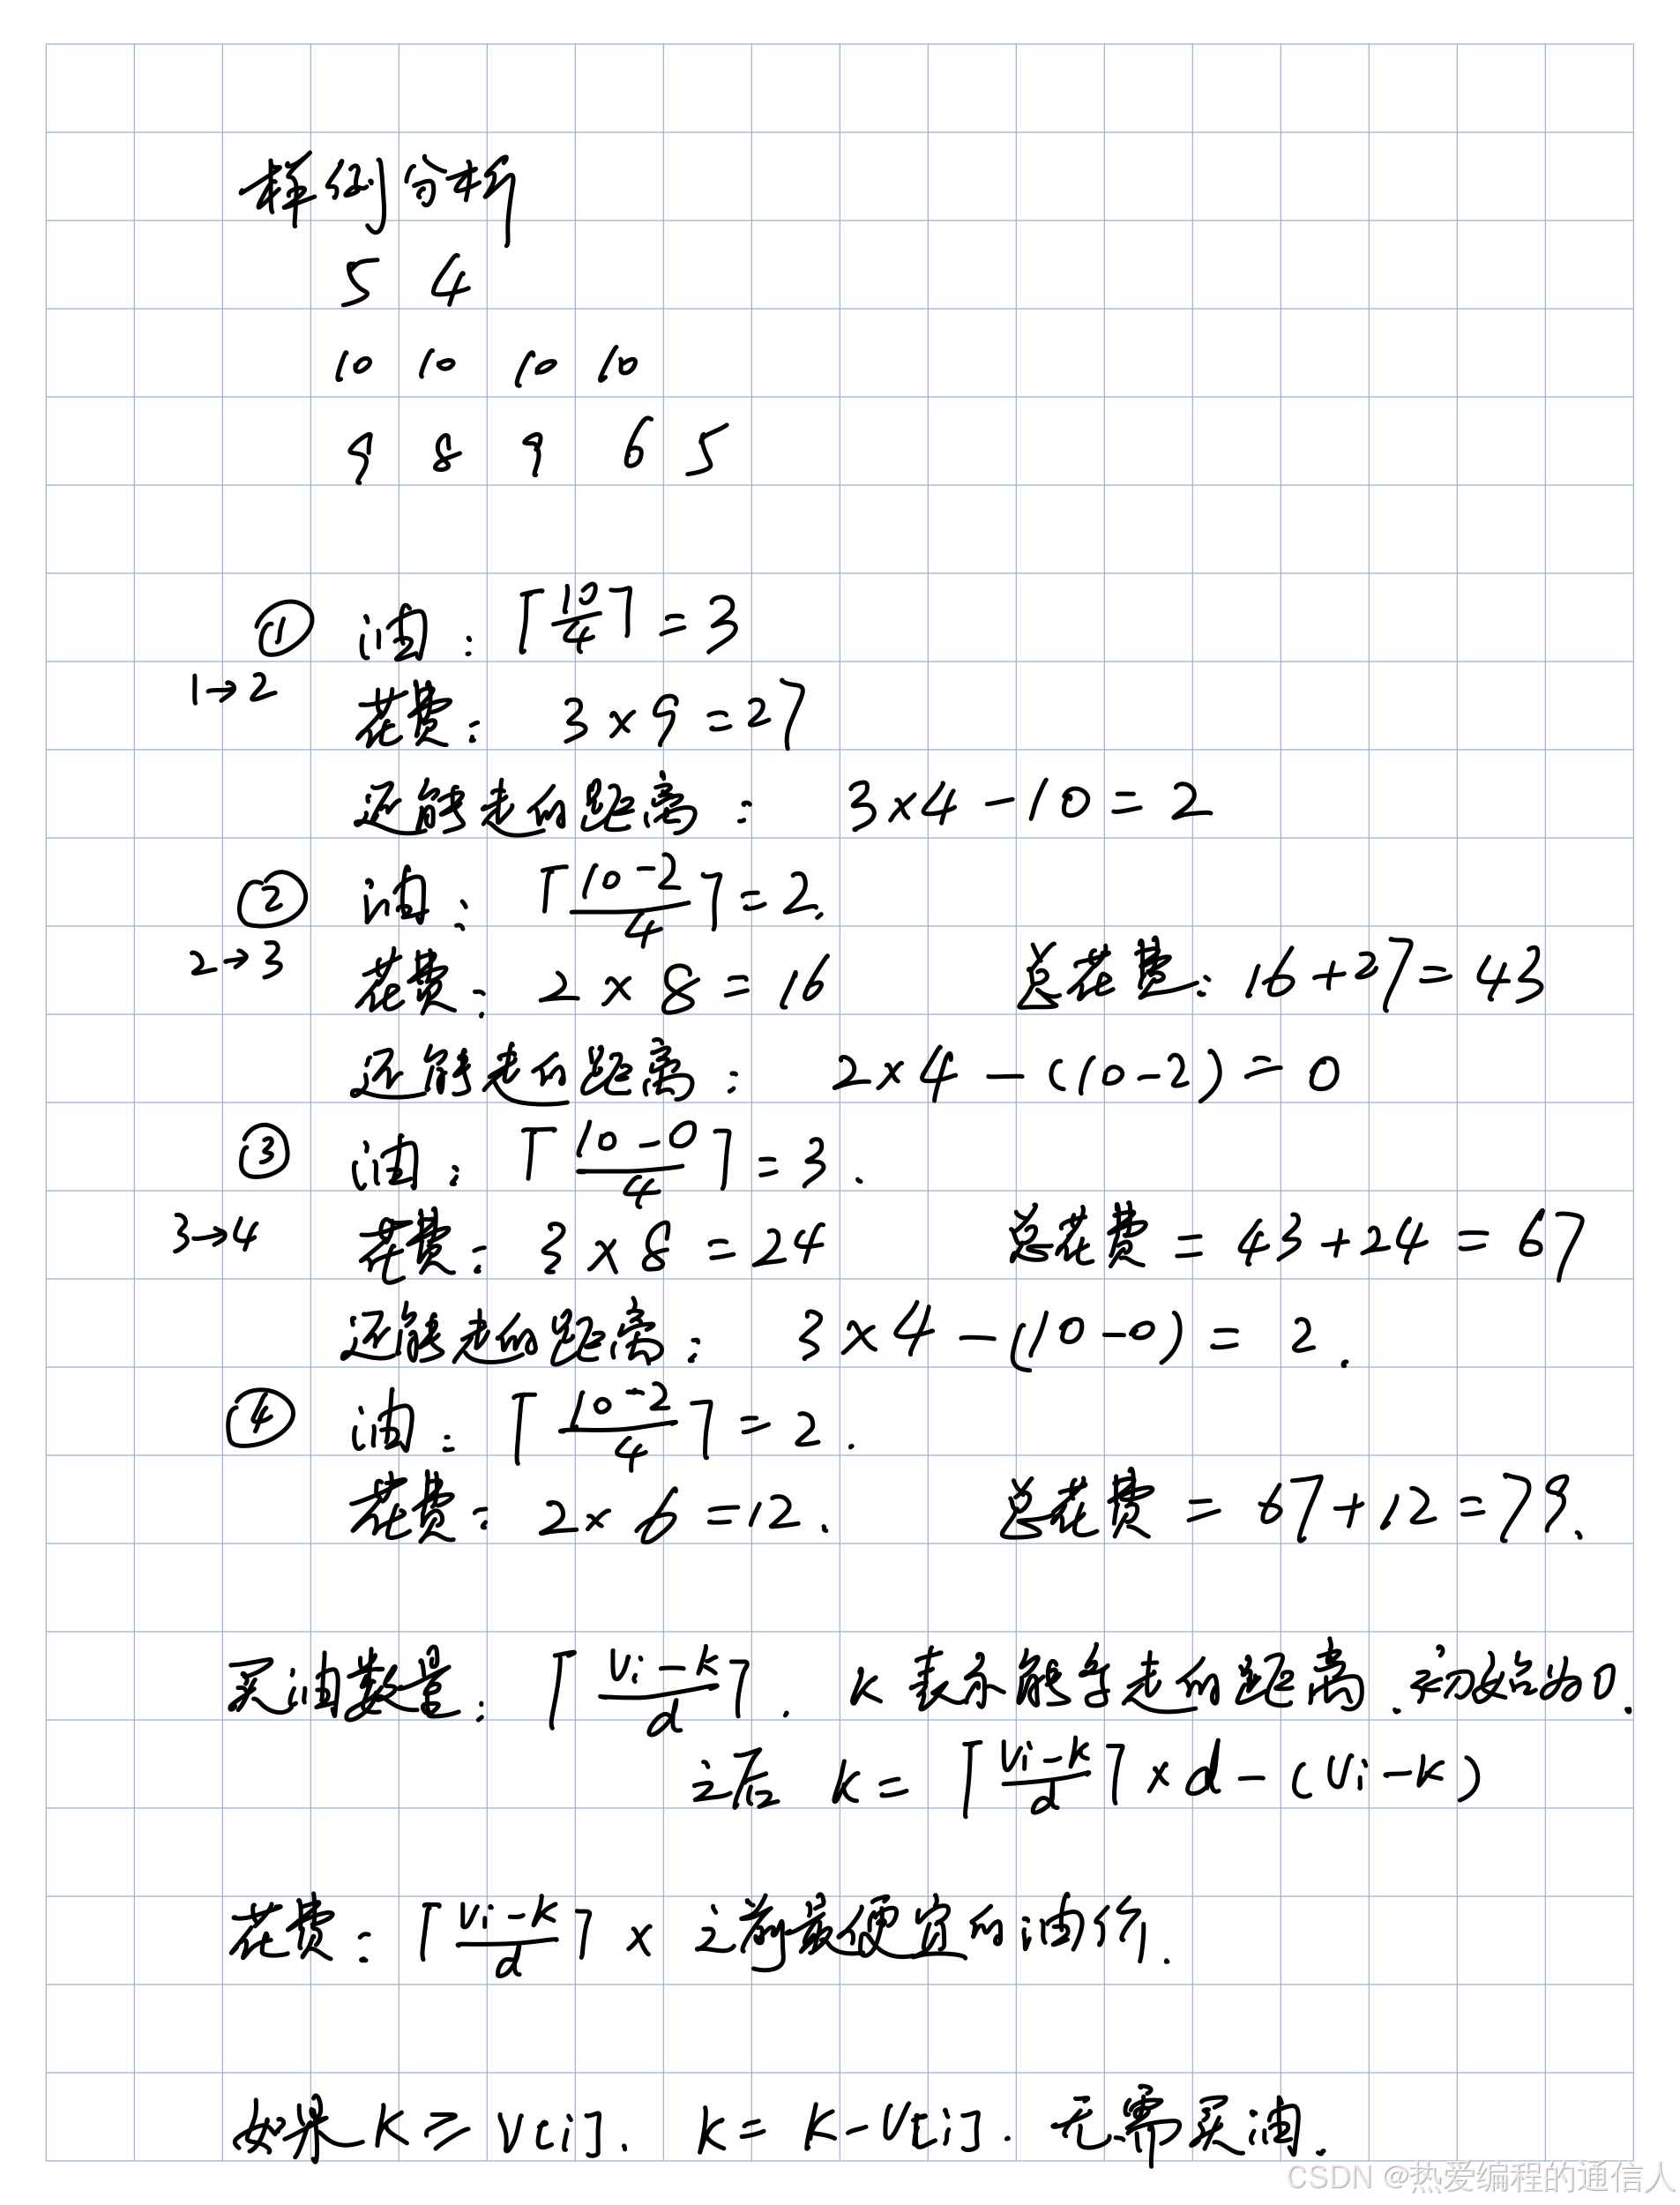 样例分析
5 4
10 10 10 10
9 8 9 6 5
① 油：⌈10/4⌉=3
1→2 花费：3×9=27
还能走的距离：3×4-10=2
② 油：⌈(10-2)/4⌉=2.
2→3 花费：2×8=16 总花费：16+27=43
还能走的距离：2×4-(10-2)=0
③ 油：⌈(10-0)/4⌉=3.
3→4 花费：3×8=24 总花费=43+24=67
还能走的距离：3×4-(10-0)=2.
④ 油：⌈(10-2)/4⌉=2.
花费：2×6=12. 总花费=67+12=79.
买油数量：⌈(Vi-k)/d⌉. k表示能多走的距离.初始为0.
之后 k=⌈(Vi-k)/d⌉×d-(Vi-k)
花费：⌈(Vi-k)/d⌉×之前最便宜的油价.
如果k≥V[i]. k=k-V[i]. 无需买油.
CSDN @热爱编程的通信人